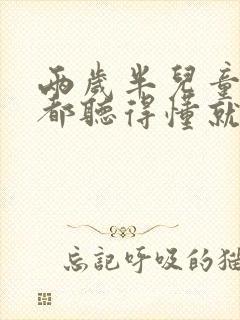 兩歲半兒童
都聽得懂就
忘記呼吸的猫